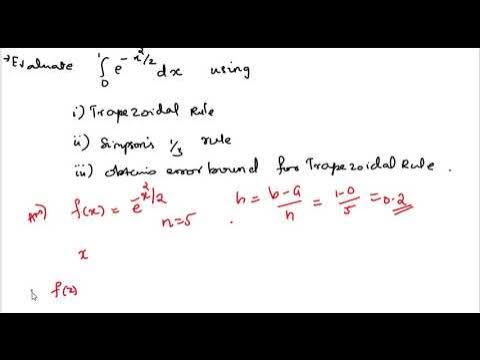 →Evaluate ∫₀¹ e^(-x²/2) dx using
i) Trapezoidal Rule
ii) Simpson's 1/3 rule
iii) Obtain error bound for Trapezoidal Rule.
Ans) f(x) = e^(-x²/2) n=5. h = (b-a)/n = (1-0)/5 = 0.2
x
f(x)